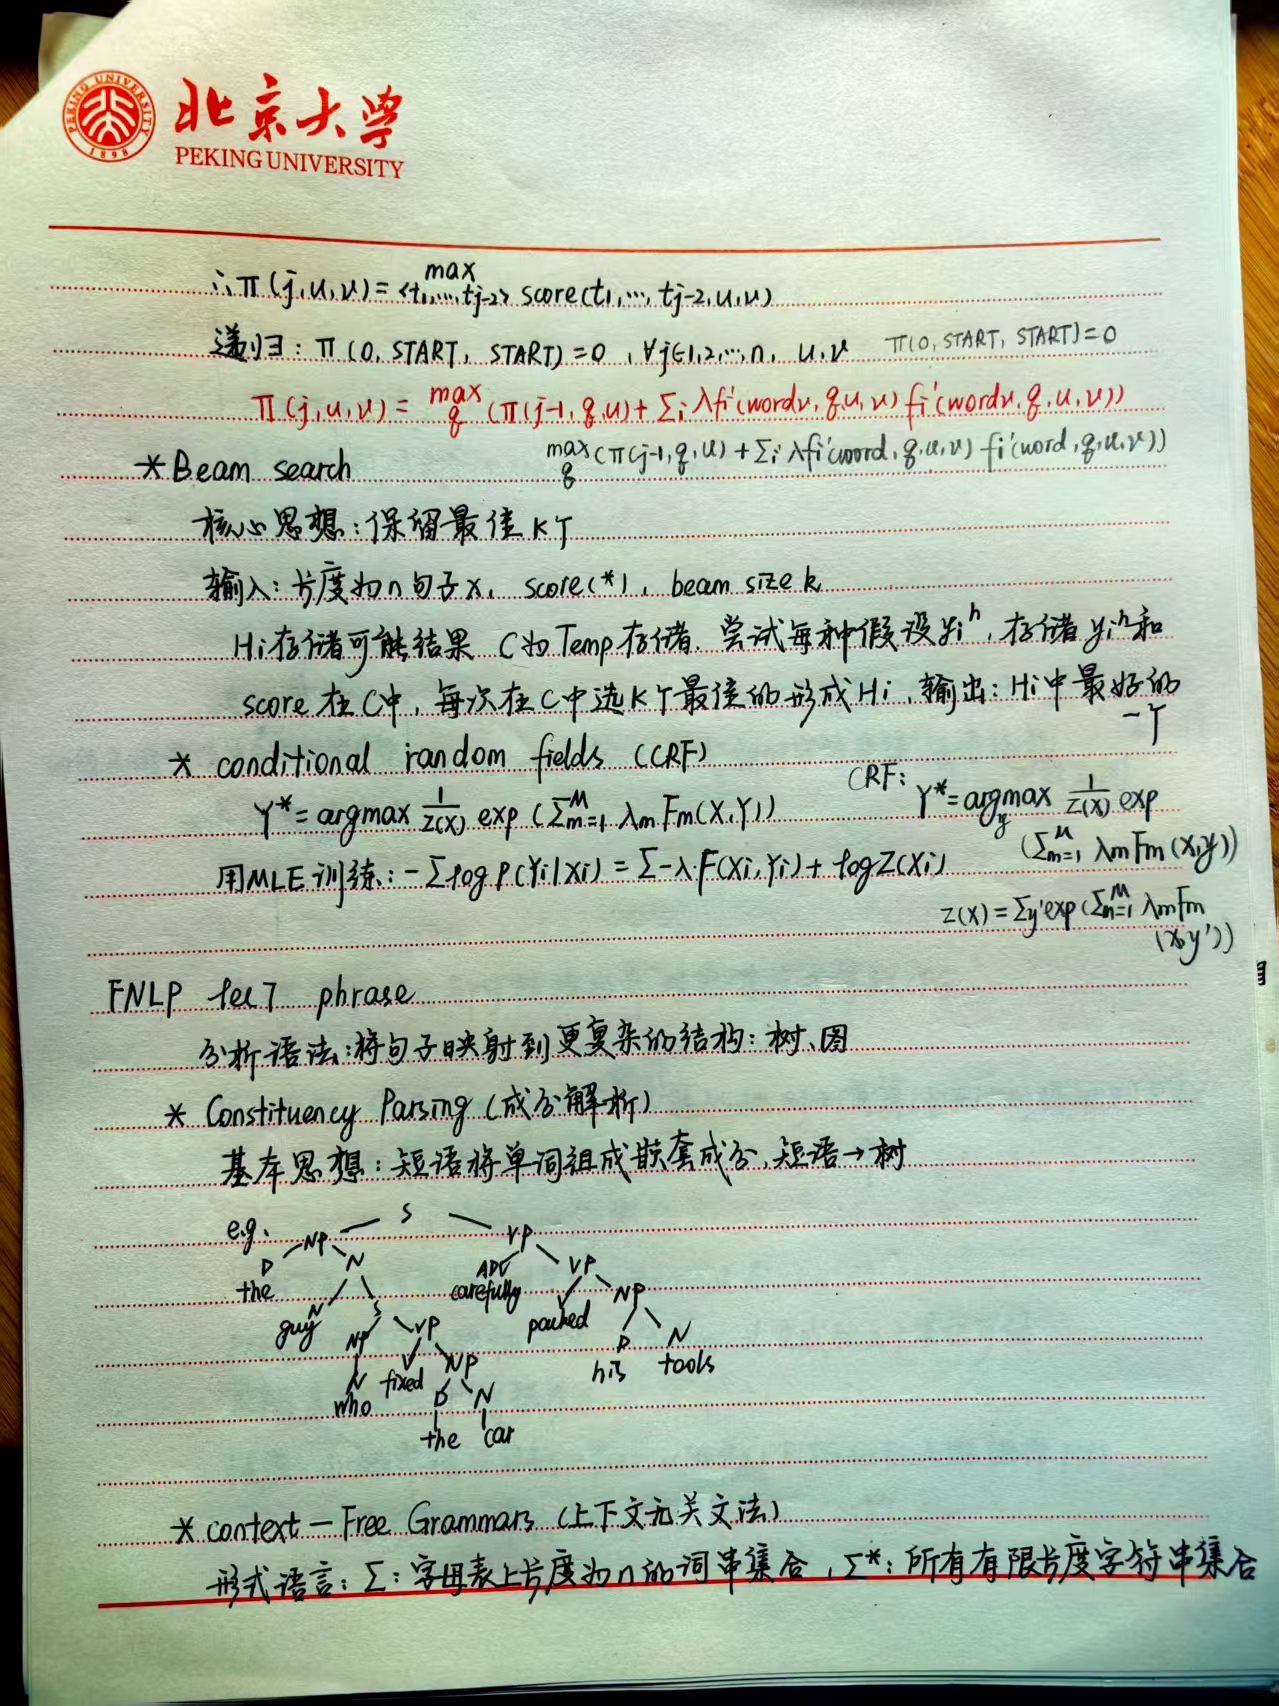 PEKING UNIVERSITY 1898
北京大学
PEKING UNIVERSITY
∴π(j,u,v)= max <t1,…,tj-2> score(t1,…,tj-2,u,v)
递归: π(0, START, START)=0 , ∀j∈1,2,…,n, u,v π(0, START, START)=0
π(j,u,v)= max q (π(j-1,q,u)+Σi λfi'(wordv,q,u,v) fi'(wordv,q,u,v))
max q (π(j-1,q,u)+Σi λfi'(word,q,u,v) fi'(word,q,u,v))
* Beam search
核心思想:保留最佳K个
输入:长度为n句子x, score(*), beam size k
Hi存储可能结果 C为Temp存储. 尝试每种假设yi^h, 存储yi^h和
score在C中, 每次在C中选K个最佳的形成Hi, 输出: Hi中最好的
一个
* conditional random fields (CRF)
Y*=argmax 1/Z(X) exp (Σ^M m=1 λm Fm(X,Y))
CRF: Y*=argmax y 1/Z(X) exp
(Σ^M m=1 λm Fm (x,y))
用MLE训练: -Σlog p(Yi|Xi) = Σ-λ·F(Xi,Yi)+ logZ(Xi)
Z(X)=Σy'exp(Σ^M m=1 λmFm
(x,y'))
FNLP lec7 phrase
分析语法:将句子映射到更复杂的结构: 树、图
* Constituency Parsing (成分解析)
基本思想: 短语将单词组成嵌套成分, 短语→树
e.g. S
NP VP
D N ADV VP
the carefully
N S V NP
guy packed
NP VP D N
his tools
N V NP
who fixed
D N
the car
* context-Free Grammars (上下文无关文法)
形式语言: Σ: 字母表上长度为n的词串集合, Σ*: 所有有限长度字符串集合